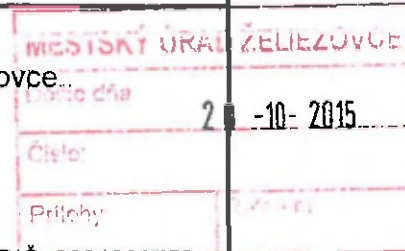 MESTSKÝ ÚRAD ŽELIEZOVCE
ovce
Došlo dňa
2 -10- 2015
Číslo:
Prílohy: